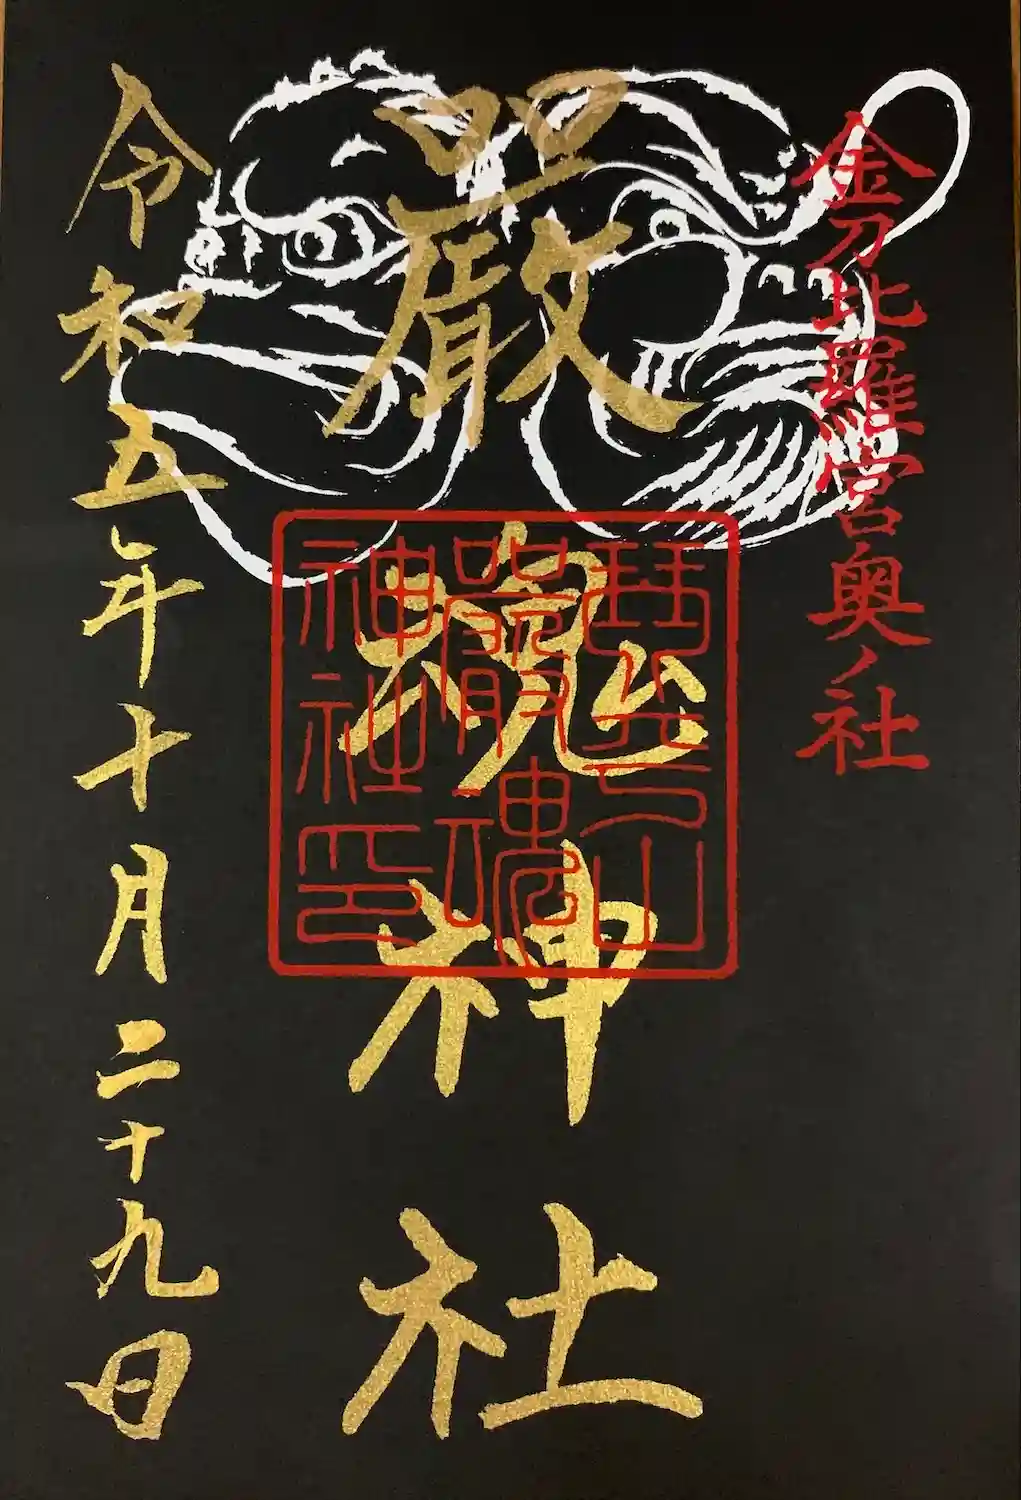 金刀比羅宮奥ノ社
嚴魂神社
琴平山
嚴魂
神社印
令和五年十月二十九日